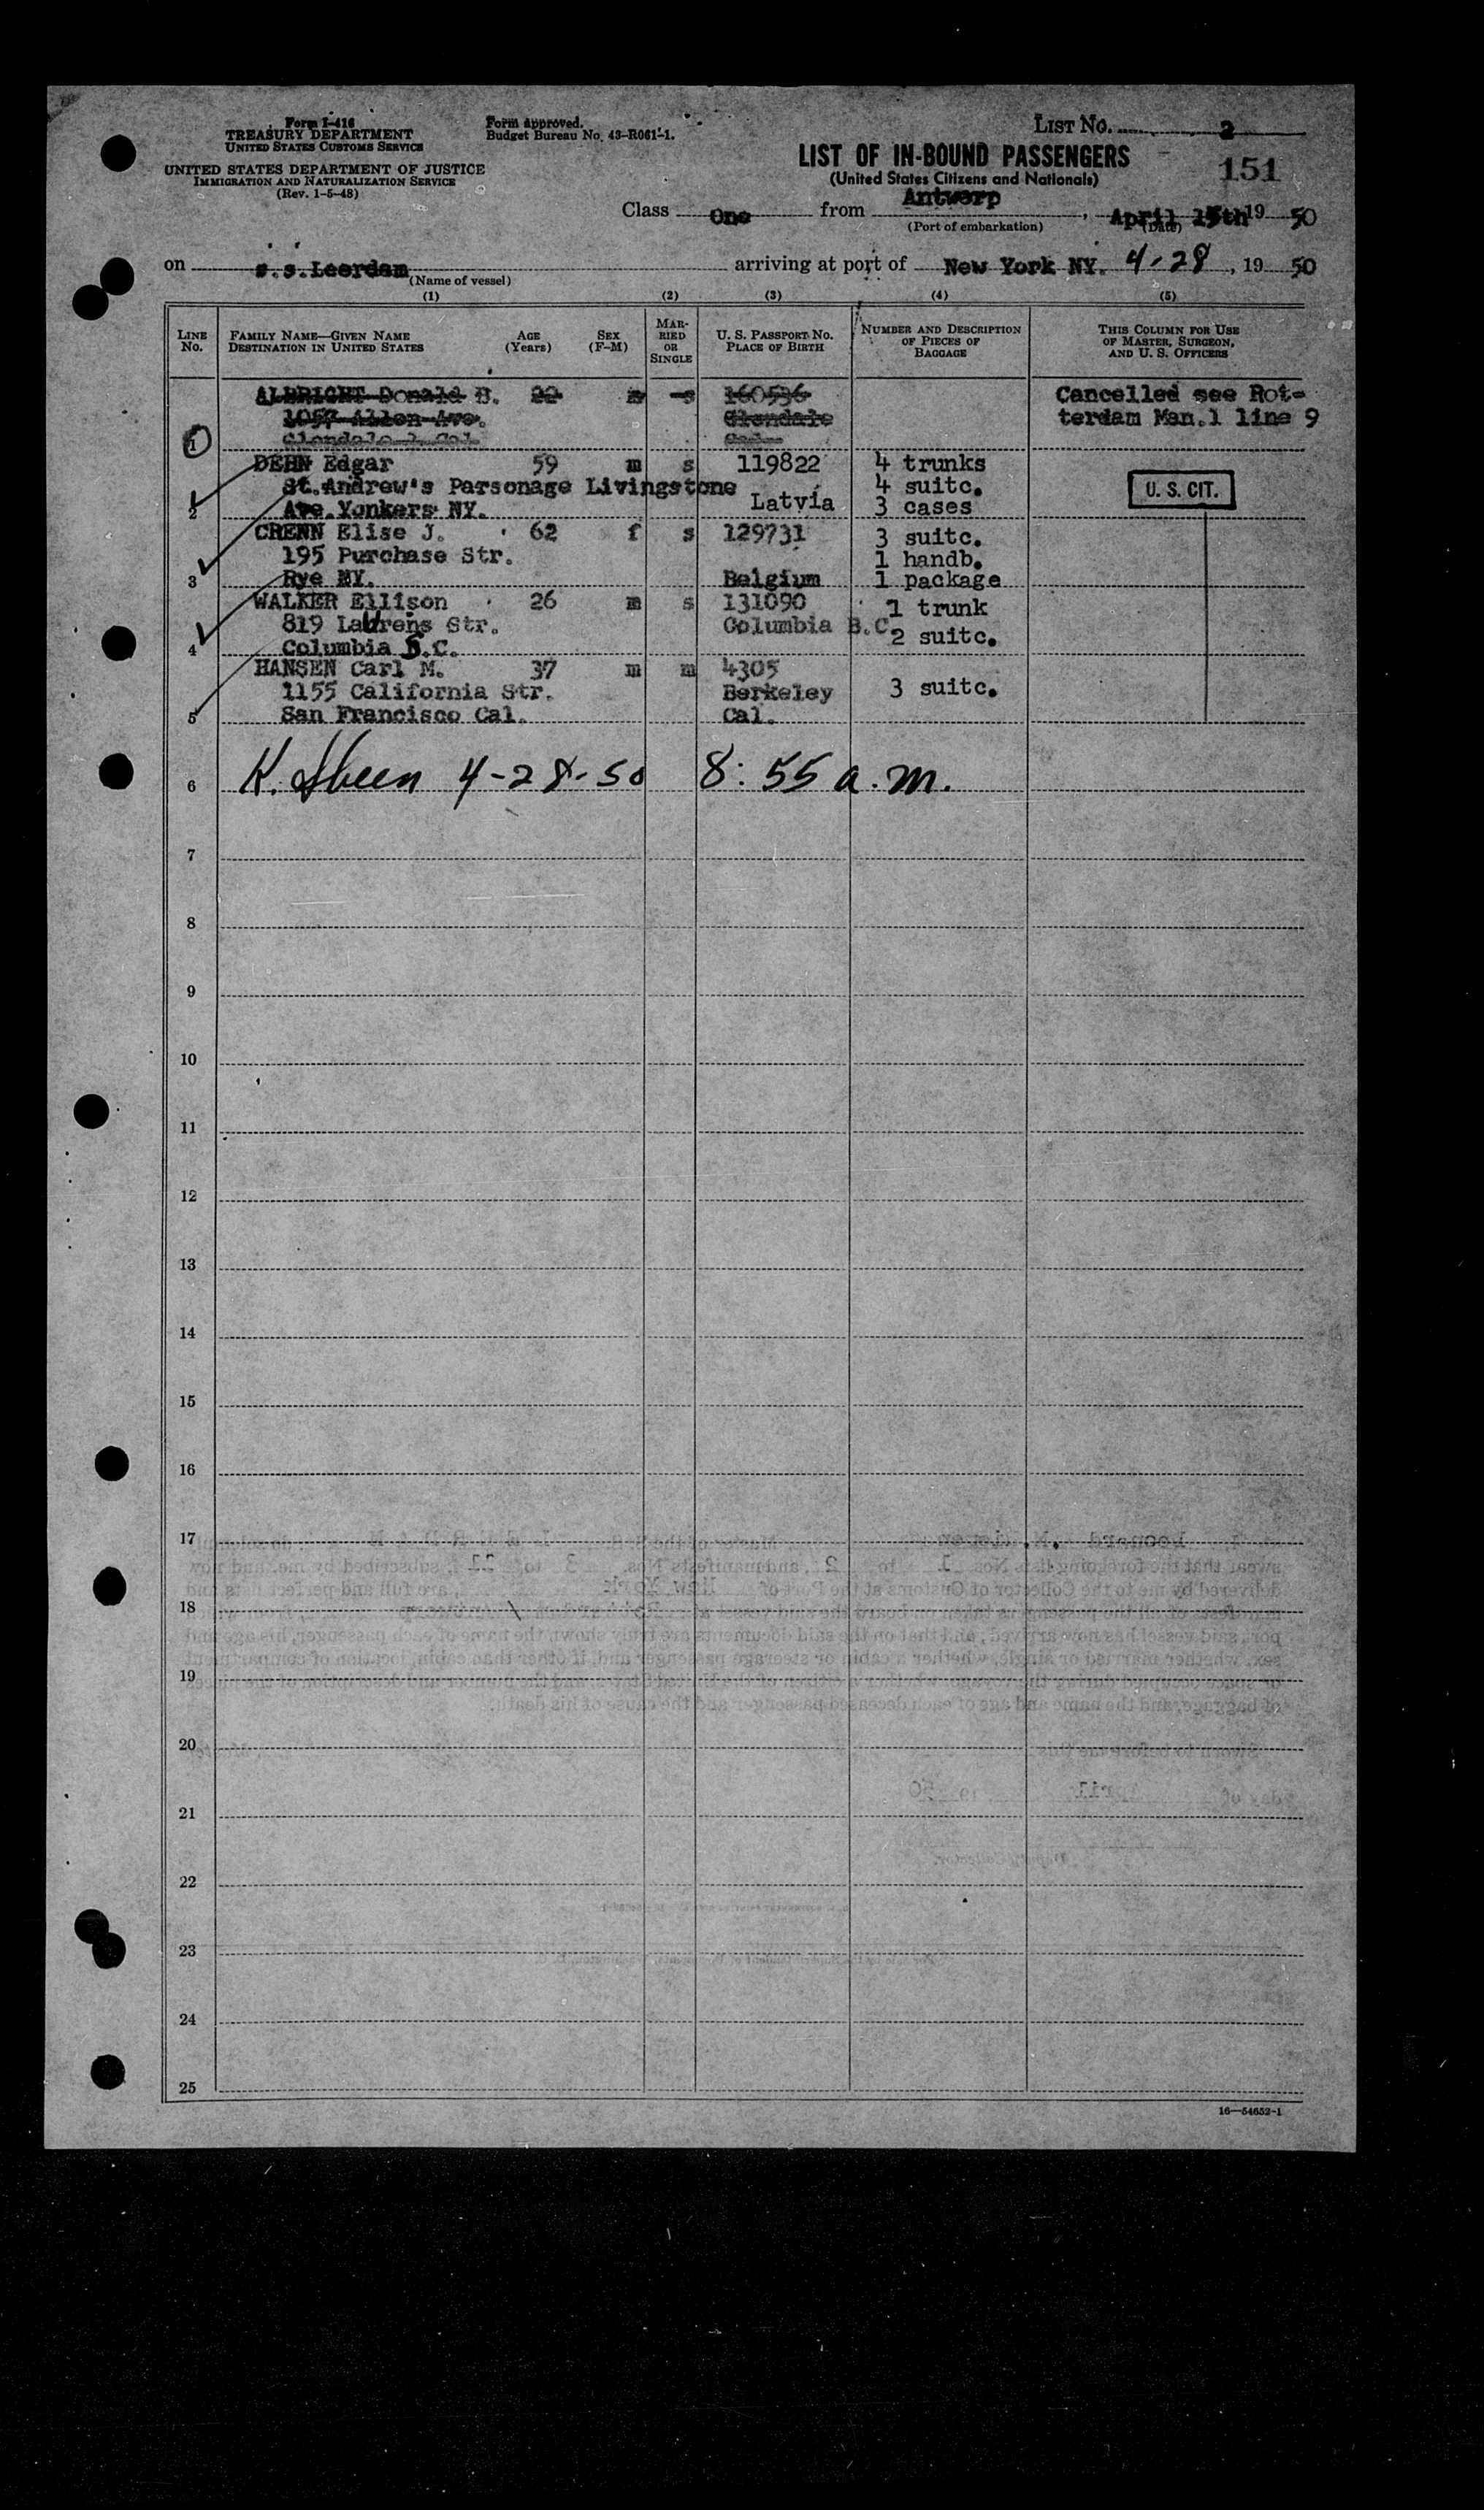 Form I-416
TREASURY DEPARTMENT
UNITED STATES CUSTOMS SERVICE
UNITED STATES DEPARTMENT OF JUSTICE
IMMIGRATION AND NATURALIZATION SERVICE
(Rev. 1-5-48)
Form approved.
Budget Bureau No. 43-R061-1.
LIST NO. 2
LIST OF IN-BOUND PASSENGERS
(United States Citizens and Nationals)
151
Class One from Antwerp, April 15th 19 50
(Port of embarkation) (Date)
on s.s.Leerdam arriving at port of New York NY. 4-28, 19 50
(Name of vessel)
(1) (2) (3) (4) (5)
LINE No.
FAMILY NAME—GIVEN NAME
DESTINATION IN UNITED STATES
AGE (Years)
SEX (F-M)
MARRIED OR SINGLE
U. S. PASSPORT NO.
PLACE OF BIRTH
NUMBER AND DESCRIPTION OF PIECES OF BAGGAGE
THIS COLUMN FOR USE OF MASTER, SURGEON, AND U. S. OFFICERS
ALBRIGHT Donald B. 22 m s 160536 Cancelled see Rot-
1057 Allen Ave. Glendale terdam Man.1 line 9
1 Glendale Cal. Cal.
DEHN Edgar 59 m s 119822 4 trunks
St.Andrew's Parsonage Livingstone 4 suitc. U. S. CIT.
2 Ave.Yonkers NY. Latvia 3 cases
CRENN Elise J. 62 f s 129731 3 suitc.
195 Purchase Str. 1 handb.
3 Rye NY. Belgium 1 package
WALKER Ellison 26 m s 131090 1 trunk
819 Laurens Str. Columbia B.C. 2 suitc.
4 Columbia S.C.
HANSEN Carl M. 37 m m 4305
1155 California Str. Berkeley 3 suitc.
5 San Francisco Cal. Cal.
6 4-28-50 8:55 a.m.
7
8
9
10
11
12
13
14
15
16
17
18
19
20
21
22
23
24
25
16—54652-1